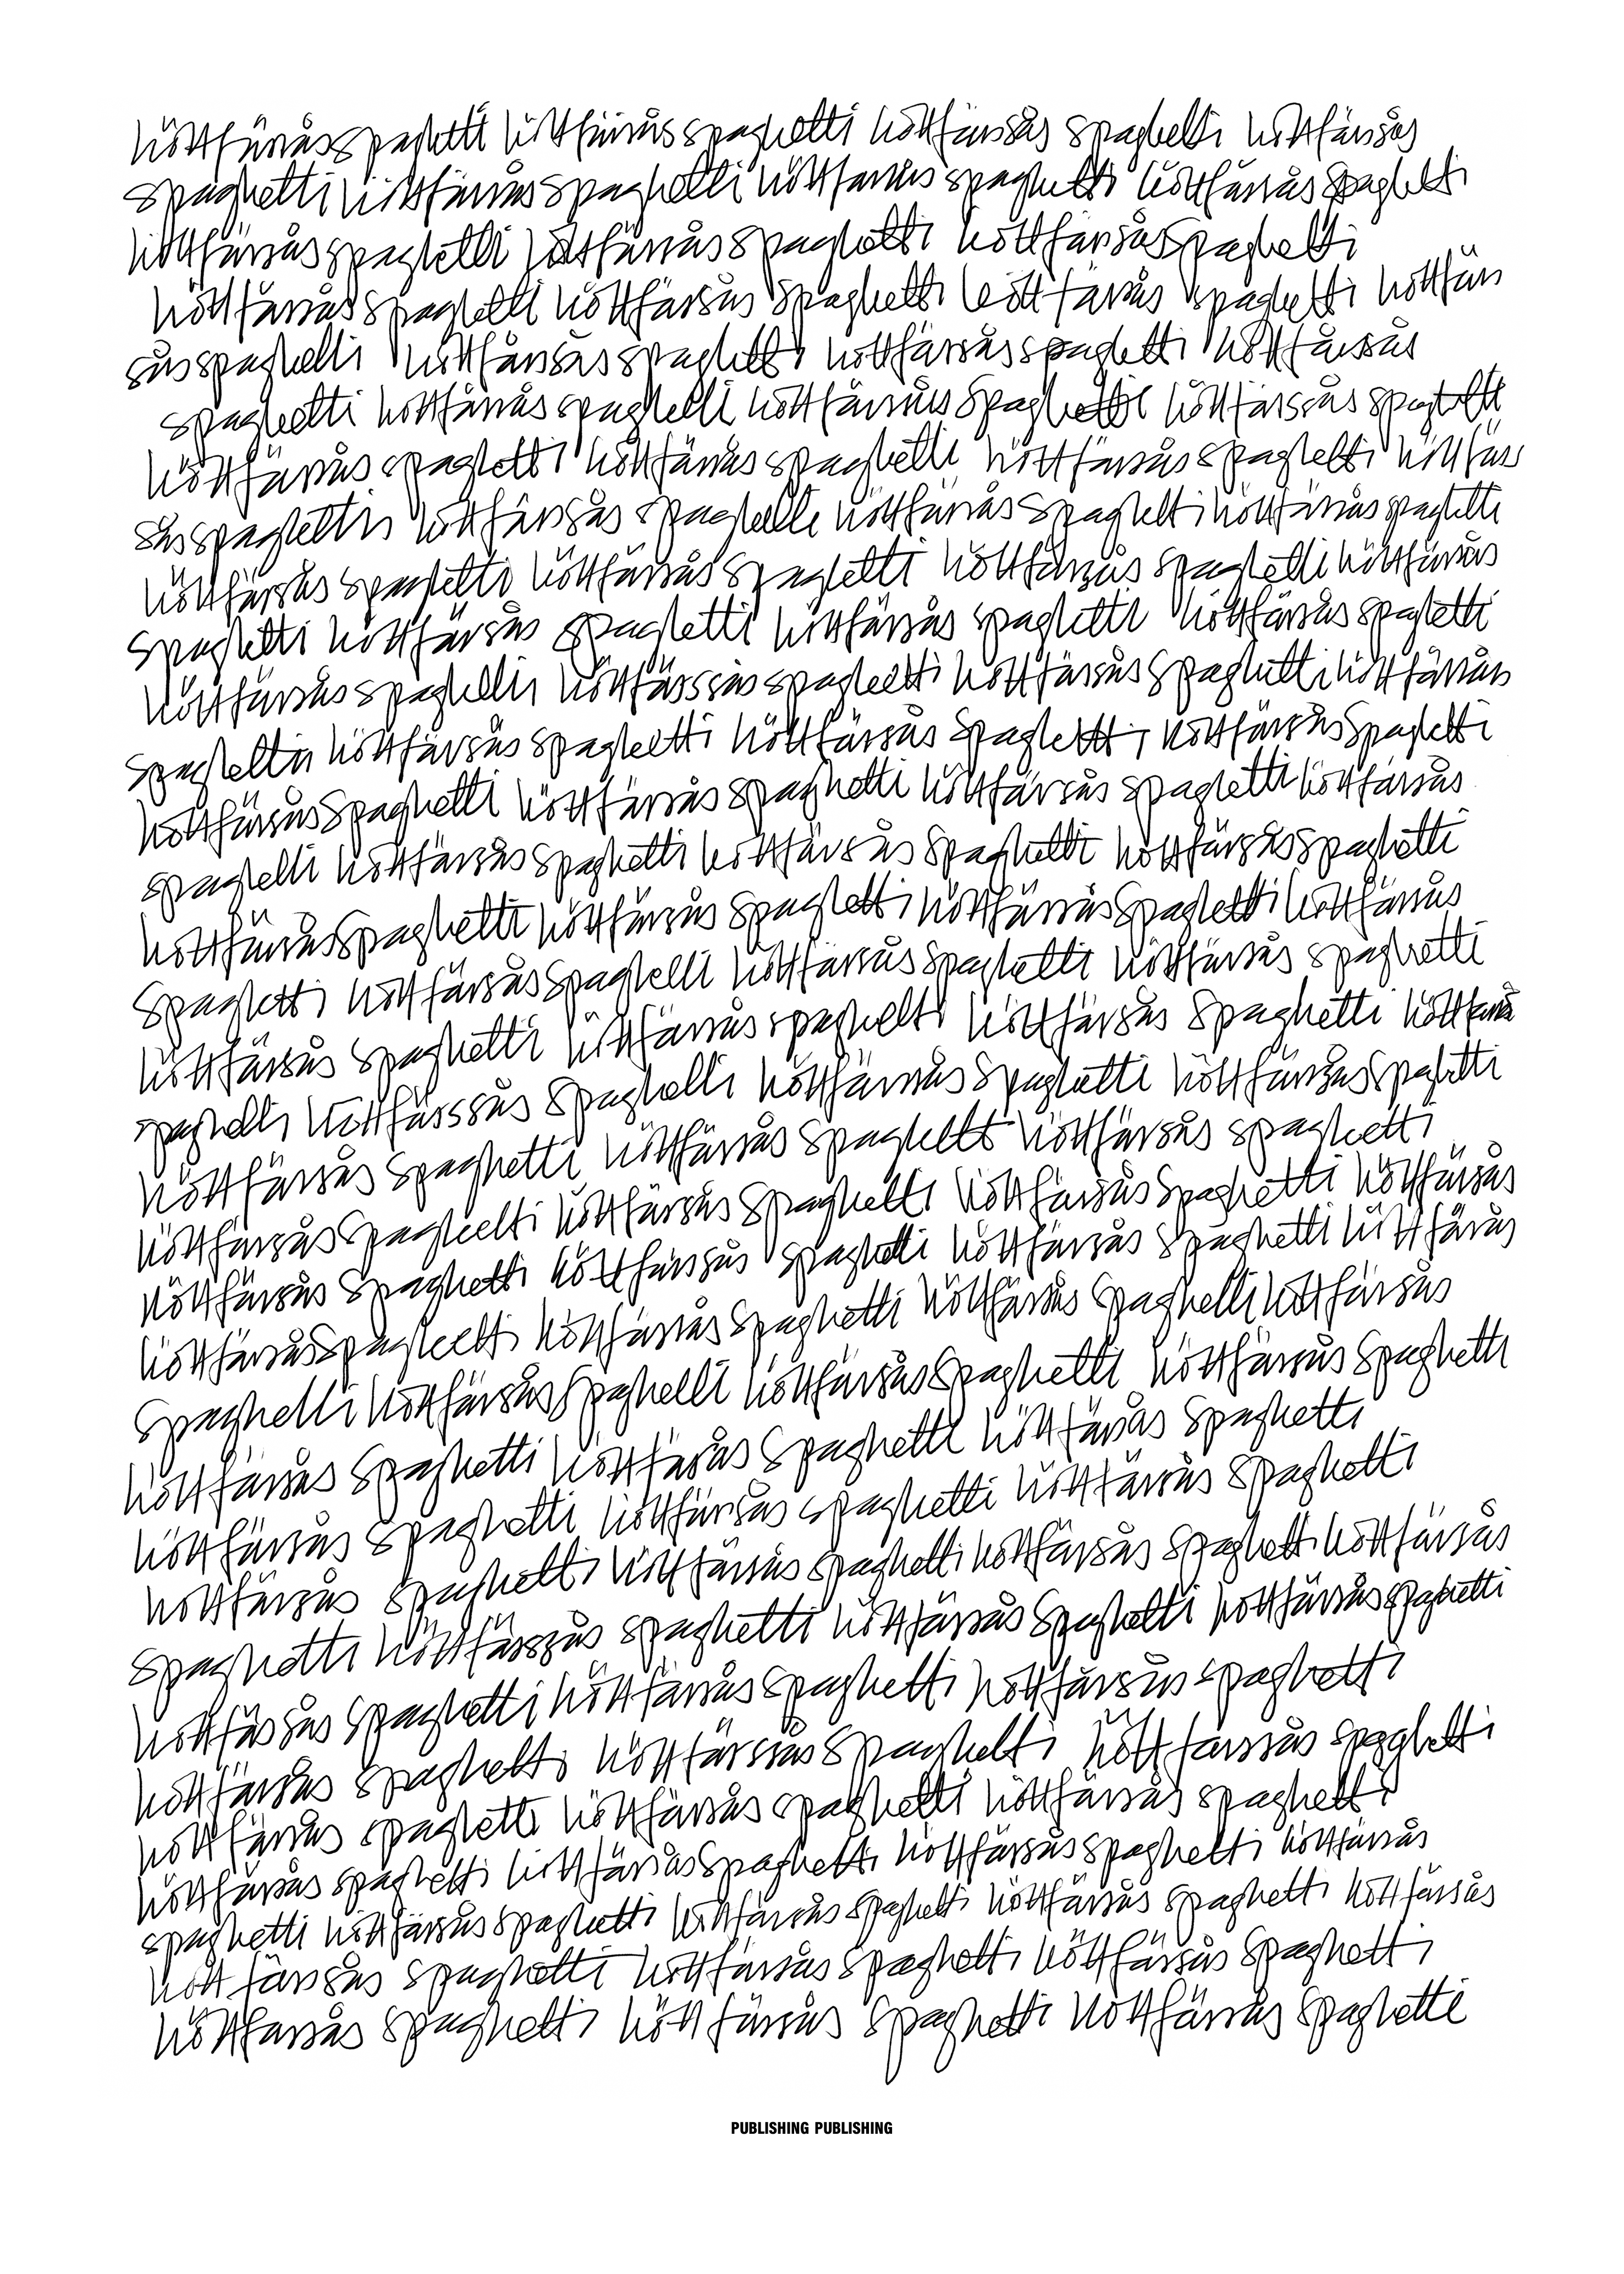 köttfärssås spaghetti köttfärssås spaghetti köttfärssås spaghetti köttfärssås
spaghetti köttfärssås spaghetti köttfärssås spaghetti köttfärssås spaghetti
köttfärssås spaghetti köttfärssås spaghetti köttfärssås spaghetti
köttfärssås spaghetti köttfärssås spaghetti köttfärssås spaghetti köttfärs
sås spaghetti köttfärssås spaghetti köttfärssås spaghetti köttfärssås
spaghetti köttfärssås spaghetti köttfärssås spaghetti köttfärssås spaghetti
köttfärssås spaghetti köttfärssås spaghetti köttfärssås spaghetti köttfärs
sås spaghetti köttfärssås spaghetti köttfärssås spaghetti köttfärssås spaghetti
köttfärssås spaghetti köttfärssås spaghetti köttfärssås spaghetti köttfärssås
spaghetti köttfärssås spaghetti köttfärssås spaghetti köttfärssås spaghetti
köttfärssås spaghetti köttfärssås spaghetti köttfärssås spaghetti köttfärssås
spaghetti köttfärssås spaghetti köttfärssås spaghetti köttfärssås spaghetti
köttfärssås spaghetti köttfärssås spaghetti köttfärssås spaghetti köttfärssås
spaghetti köttfärssås spaghetti köttfärssås spaghetti köttfärssås spaghetti
köttfärssås spaghetti köttfärssås spaghetti köttfärssås spaghetti köttfärssås
spaghetti köttfärssås spaghetti köttfärssås spaghetti köttfärssås spaghetti
köttfärssås spaghetti köttfärssås spaghetti köttfärssås spaghetti köttfärs
spaghetti köttfärssås spaghetti köttfärssås spaghetti köttfärssås spaghetti
köttfärssås spaghetti köttfärssås spaghetti köttfärssås spaghetti
köttfärssås spaghetti köttfärssås spaghetti köttfärssås spaghetti köttfärssås
köttfärssås spaghetti köttfärssås spaghetti köttfärssås spaghetti köttfärssås
köttfärssås spaghetti köttfärssås spaghetti köttfärssås spaghetti köttfärssås
spaghetti köttfärssås spaghetti köttfärssås spaghetti köttfärssås spaghetti
köttfärssås spaghetti köttfärssås spaghetti köttfärssås spaghetti
köttfärssås spaghetti köttfärssås spaghetti köttfärssås spaghetti
köttfärssås spaghetti köttfärssås spaghetti köttfärssås spaghetti köttfärssås
spaghetti köttfärssås spaghetti köttfärssås spaghetti köttfärssås spaghetti
köttfärssås spaghetti köttfärssås spaghetti köttfärssås spaghetti
köttfärssås spaghetti köttfärssås spaghetti köttfärssås spaghetti
köttfärssås spaghetti köttfärssås spaghetti köttfärssås spaghetti
köttfärssås spaghetti köttfärssås spaghetti köttfärssås spaghetti köttfärssås
spaghetti köttfärssås spaghetti köttfärssås spaghetti köttfärssås spaghetti köttfärssås
köttfärssås spaghetti köttfärssås spaghetti köttfärssås spaghetti
köttfärssås spaghetti köttfärssås spaghetti köttfärssås spaghetti
PUBLISHING PUBLISHING